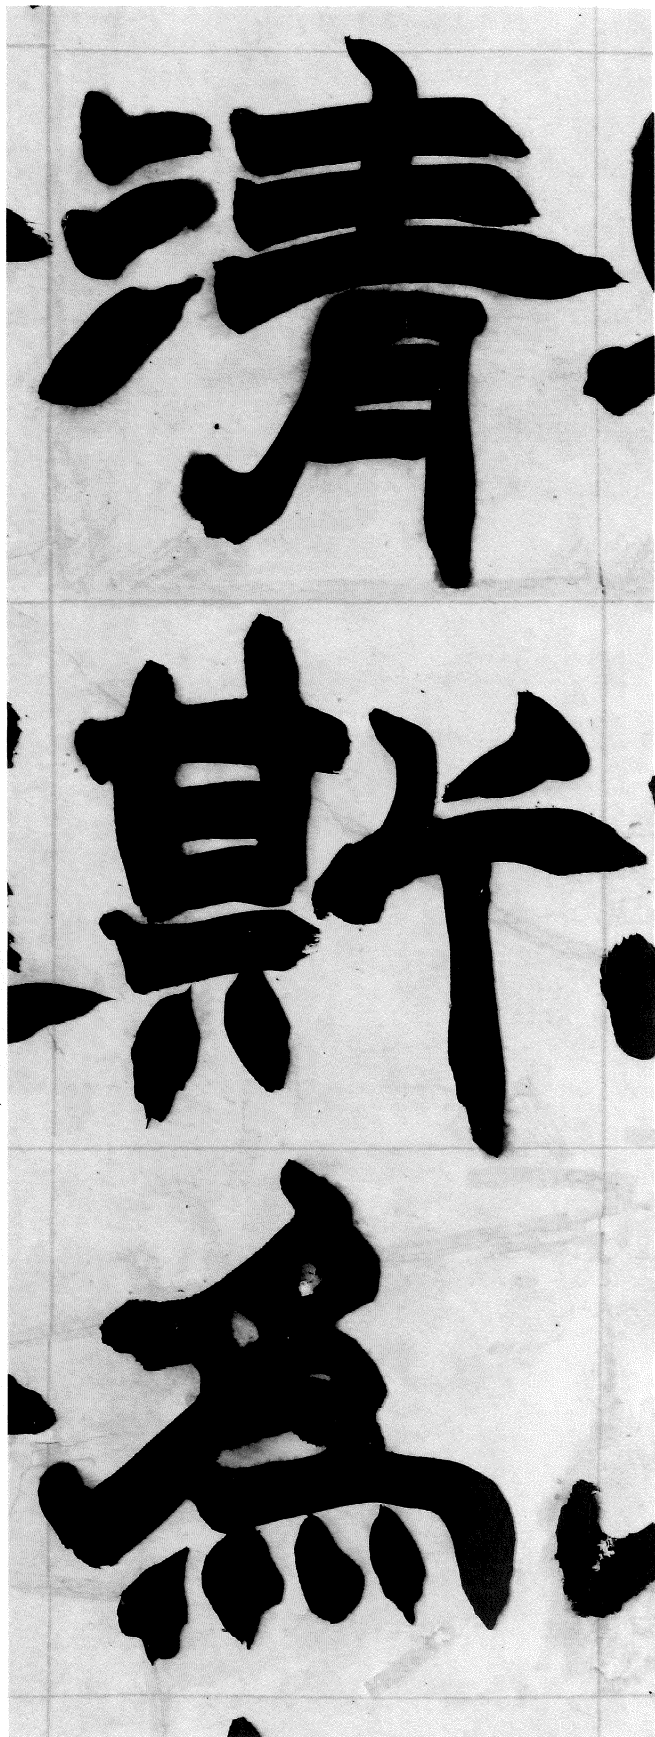 清斯為